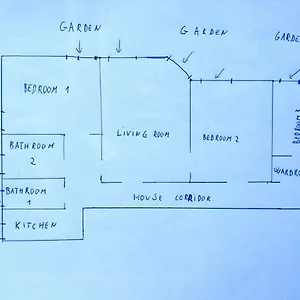 GARDEN
GARDEN
GARDE
BEDROOM 1
LIVING ROOM
BEDROOM 2
BEDROOM 3
BATHROOM
2
WARDRO
BATHROOM
1
HOUSE CORRIDOR
KITCHEN